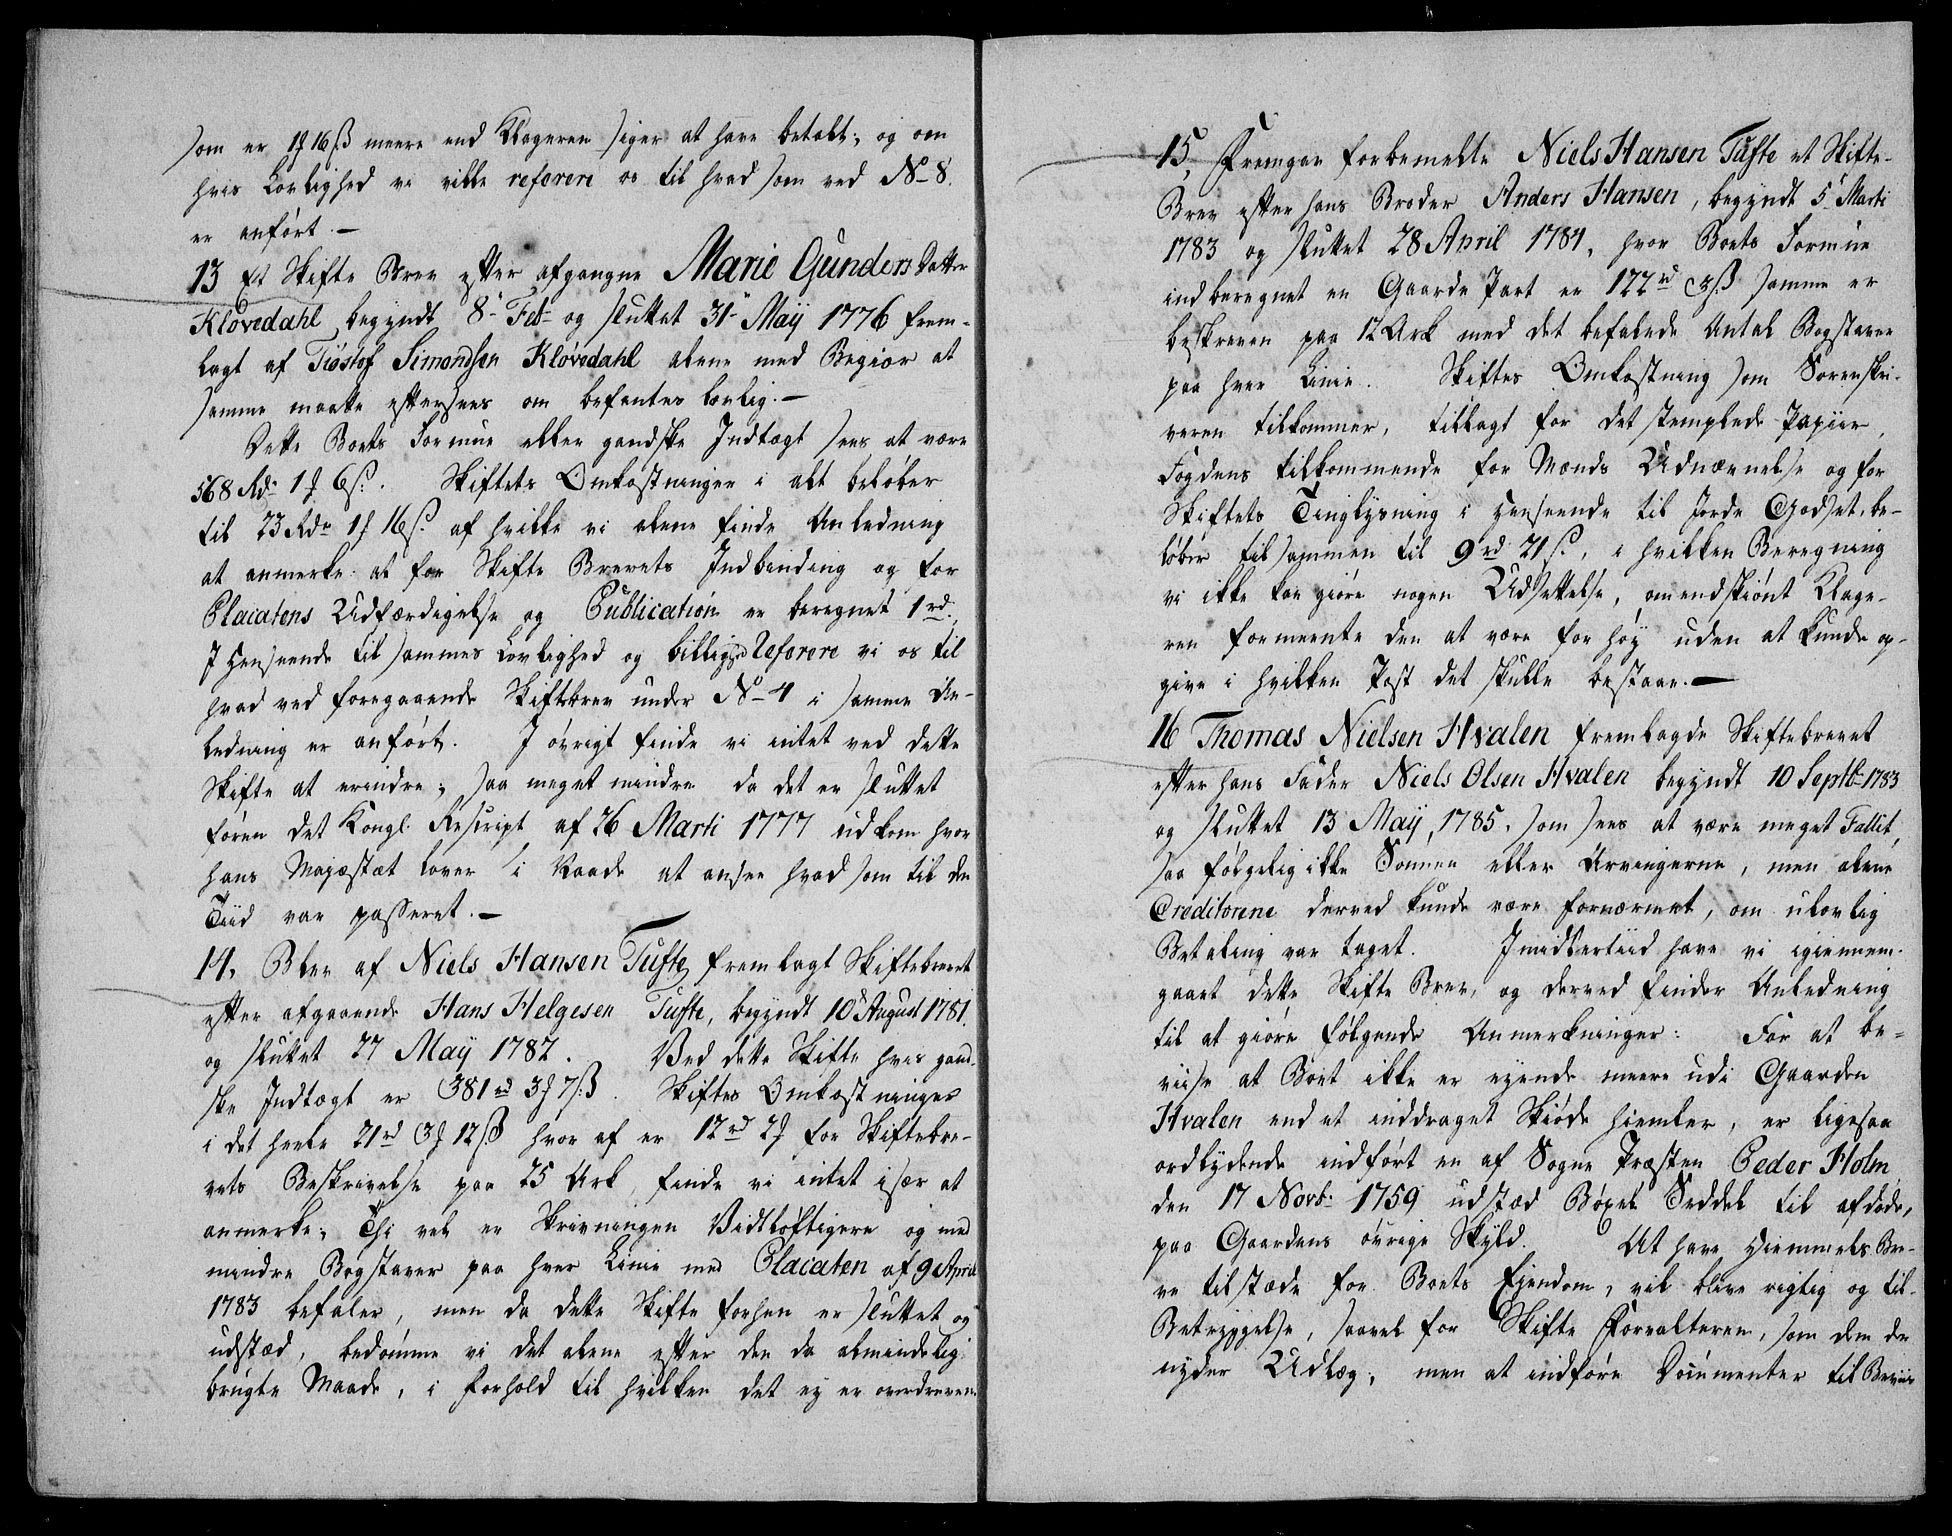 som er 1 ƒ 16 ß meere end Klageren siger at have betalt; og om
hvis Lovlighed vi ville referere os til hvad som ved No 8
er anført. —
13 Et Skifte Brev efter afgangne Marie Gunders Datter
Kløvedahl begyndt 8de Feb. og sluttet 31 Maÿ 1776 frem-
lagt af Tiøstof Simondsen Kløvedahl alene med Begiær at
samme maatte eftersees om befantes lovlig. —
Dette Boets Formue eller gandske Indtægt sees at være
568 Rdr 1 ƒ 6 ß. Skiftets Omkostninger i alt beløber
til 23 Rdr 1 ƒ 16 ß. af hvilke vi alene finde Anledning
at anmerke: at for Skifte Brevets Indbinding og for
Placatens Udfærdigelse og Publication er beregnet 1 rd.
I Henseende til sammes Lovlighed og billighed referere vi os til
hvad ved foregaaende Skiftebrev under No 4 i samme An-
ledning er anført. I øvrigt finde vi intet ved dette
Skifte at erindre; saa meget mindre da det er sluttet
føren det Kongl. Rescript af 26 Marti 1777 udkom hvor
hans Majestæt lover i Naade at ansee hvad som til den
Tiid var passeret. —
14. Blev af Niels Hansen Tufte fremlagt Skiftebrevet
efter afgaaende Hans Helgesen Tufte, begyndt 10de August 1781.
og sluttet 27 Maÿ 1782. Ved dette Skifte hvis gand-
ske Indtægt er 381 rd 3 ƒ 7 ß. Skiftes Omkostninger
i det heele 21 rd 3 ƒ 12 ß hvor af er 12 rd 2 ƒ for Skiftebre-
vets Beskrivelse paa 25 Ark, finde vi intet især at
anmerke; Thi vel er Skrivningen Vidtløftigere og med
mindre Bogstaver paa hver Linie end Placaten af 9 April
1783 befaler, men da dette Skifte forhen er sluttet og
udstæd, bedømme vi det alene efter den da almindelig
brugte Maade, i forhold til hvilken det ey er overdreven.
15, Fremgav forbemelte Niels Hansen Tufte et Skifte-
Brev efter hans Broder Anders Hansen, begyndt 5 Marti
1783 og sluttet 28 April 1784, hvor Boets Formue
indberegnet en Gaarde Part er 122 rd 3 ß samme er
beskreven paa 12 Ark med det befalede Antal Bogstaver
paa hver Linie. Skiftes Omkostning som Sorenskri-
veren tilkommer, tillagt for det stemplede Papiir,
Fogdens tilkommende for Mænds Udnævnelse og for
Skiftets Tinglysning i Henseende til Jorde Godset, be-
løber tilsammen til 9 rd 21 ß, i hvilken Beregning
vi ikke kan giøre nogen Udsettelse, omendskiønt Klage-
ren formeente den at være for høÿ uden at kunde op-
give i hvilken Post det skulle bestaae. —
16 Thomas Nielsen Hvalen fremlagde Skiftebrevet
efter hans Fader Niels Olsen Hvalen begyndt 10 Septbr 1783
og sluttet 13 Maÿ, 1785. som sees at være meget Fallit,
saa følgelig ikke Sønnen eller Arvingerne, men alene
Creditorene derved kunde være fornærmet, om ulovlig
Betaling var taget. Imidlertiid have vi igiennem-
gaaet dette Skifte Brev, og derved finder Anledning
til at giøre følgende Anmerkninger: For at be-
viise at Boet ikke er eyende meere udi Gaarden
Hvalen end et inddraget Skiøde hiemler, er ligesaa
ordlydende indført en af Sogne Præsten Peder Holm
den 17 Novb: 1759 udstæd Bøxel Seddel til afdøde,
paa Gaardens øvrige Skyld. At have Hiemmels Bre-
ve tilstæde for Boets Eyendom, vil blive rigtig og til
Betryggelse, saavel for Skifte Forvalteren, som dem der
nyder Udlæg; men at indføre Documenter til Beviis